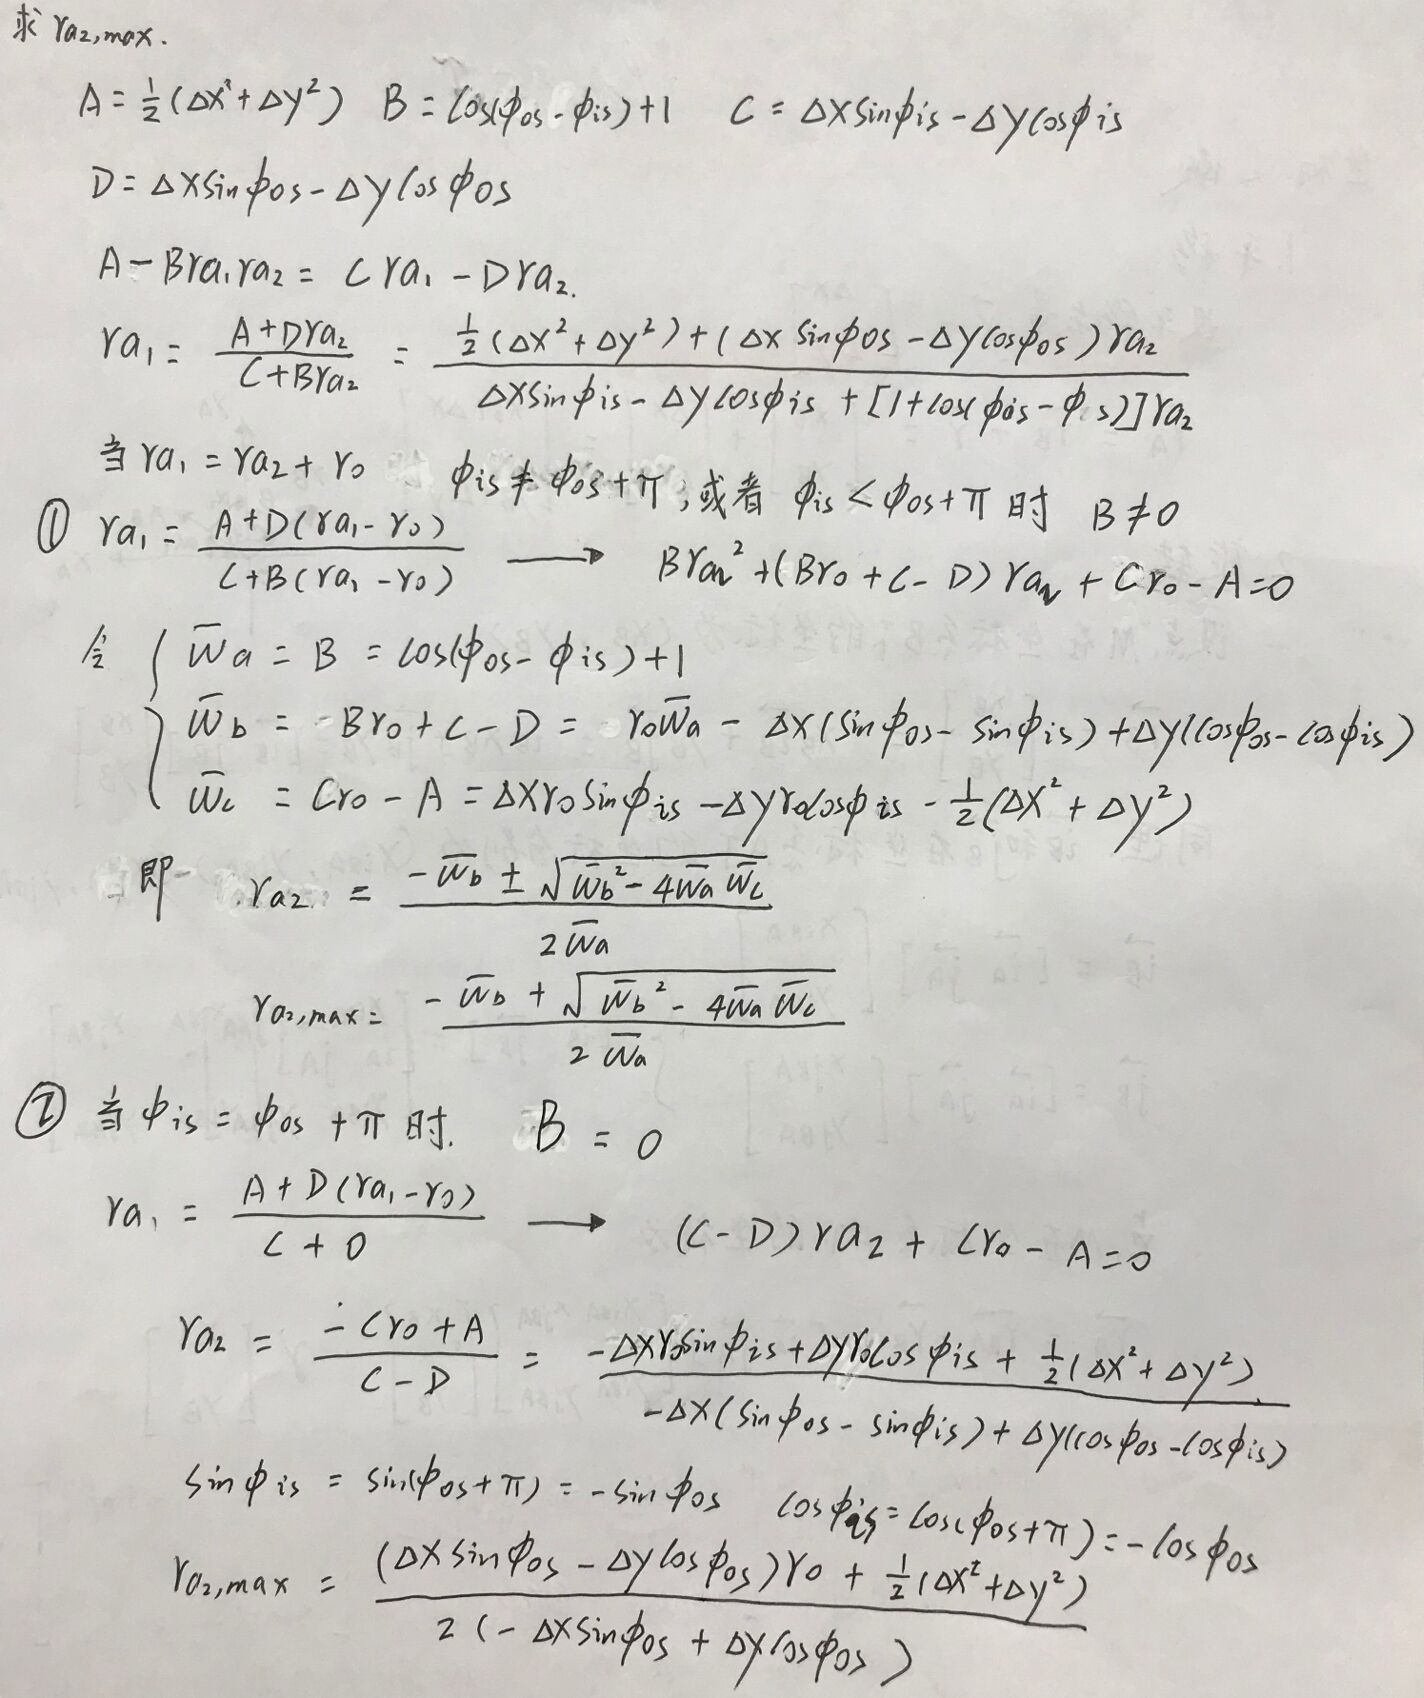 求 ra2,max.
A = 1/2(Δx²+Δy²) B = cos(φos-φis)+1 C = Δxsinφis-Δycosφis
D = Δxsinφos-Δycosφos
A-Bra1ra2 = Cra1-Dra2.
ra1 = (A+Dra2)/(C+Bra2) = (1/2(Δx²+Δy²)+(Δxsinφos-Δycosφos)ra2)/(Δxsinφis-Δycosφis+[1+cos(φos-φis)]ra2)
当 ra1 = ra2+r0 φis≠φos+π,或者 φis<φos+π 时 B≠0
① ra1 = (A+D(ra1-r0))/(C+B(ra1-r0)) → Bra2²+(Br0+C-D)ra2+Cr0-A=0
令 { w̄a = B = cos(φos-φis)+1
w̄b = Br0+C-D = r0w̄a-Δx(sinφos-sinφis)+Δy(cosφos-cosφis)
w̄c = Cr0-A = Δxr0sinφis-Δyr0cosφis-1/2(Δx²+Δy²)
即 ra2 = (-w̄b±√(w̄b²-4w̄aw̄c))/(2w̄a)
ra2,max = (-w̄b+√(w̄b²-4w̄aw̄c))/(2w̄a)
② 当 φis = φos+π 时. B = 0
ra1 = (A+D(ra1-r0))/(C+0) → (C-D)ra2+Cr0-A=0
ra2 = (-Cr0+A)/(C-D) = (-Δxr0sinφis+Δyr0cosφis+1/2(Δx²+Δy²))/(-Δx(sinφos-sinφis)+Δy(cosφos-cosφis))
sinφis = sin(φos+π) = -sinφos cosφis = cos(φos+π) = -cosφos
ra2,max = ((Δxsinφos-Δycosφos)r0+1/2(Δx²+Δy²))/(2(-Δxsinφos+Δycosφos))